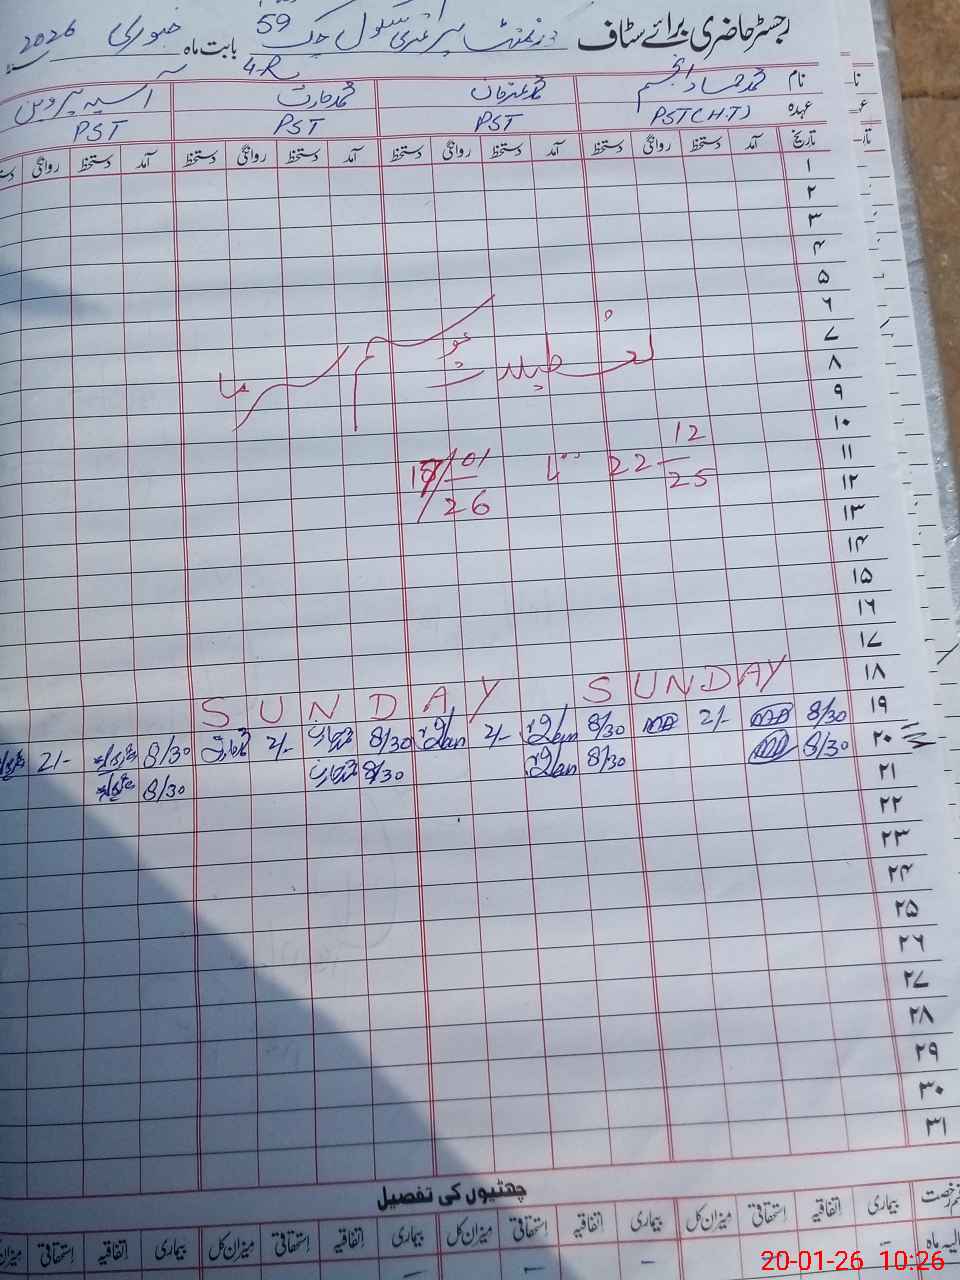 رجسٹر حاضری برائے سٹاف گورنمنٹ پرائمری سکول چک 59 بابت ماہ جنوری 2026ء
4-R
نام محمد حماد انجم محمد عرفان محمد حارث آسیہ پروین
عہدہ PST(H.T) PST PST PST
تاریخ آمد دستخط روانگی دستخط آمد دستخط روانگی دستخط آمد دستخط روانگی دستخط آمد دستخط روانگی
۱
۲
۳
۴
۵
۶
۷
۸
۹
۱۰
۱۱
۱۲
۱۳
۱۴
۱۵
۱۶
۱۷
۱۸
۱۹
۲۰
۲۱
۲۲
۲۳
۲۴
۲۵
۲۶
۲۷
۲۸
۲۹
۳۰
۳۱
تعطیلات موسم سرما
22-12-25 تا /01/26
SUNDAY SUNDAY
8/30 2/- 8/30 2/- 8/30 2/- 8/30 2/-
8/30 8/30 8/30 8/30
چھٹیوں کی تفصیل
قسم رخصت بیماری اتفاقیہ استحقاقی میزان کل بیماری اتفاقیہ استحقاقی میزان کل بیماری اتفاقیہ استحقاقی میزان کل بیماری اتفاقیہ استحقاقی میزان
حالیہ ماہ
20-01-26 10:26